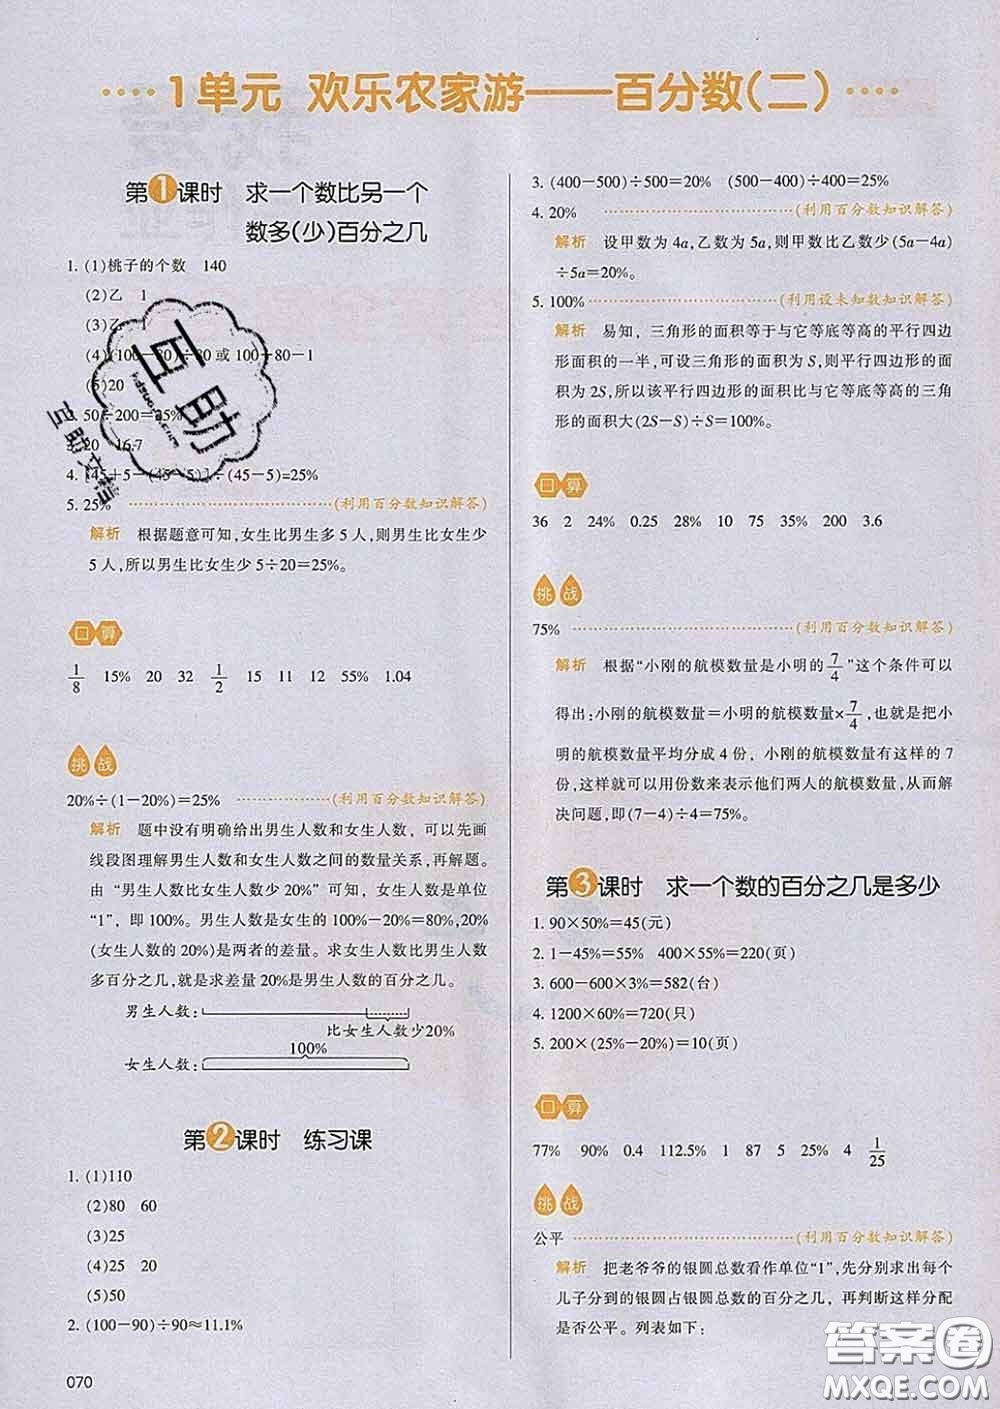 1单元 欢乐农家游——百分数(二)
第1课时 求一个数比另一个
数多(少)百分之几
1. (1)桃子的个数 140
(2)乙 1
(3)乙 1
(4)(100-80)÷80或100÷80-1
(5)20
2. 50÷200=25%
3. 20 16.7
4. [45+5-(45-5)]÷(45-5)=25%
5. 25% (利用百分数知识解答)
解析 根据题意可知,女生比男生多5人,则男生比女生少
5人,所以男生比女生少5÷20=25%。
口算
1/8 15% 20 32 1/2 15 11 12 55% 1.04
挑战
20%÷(1-20%)=25% (利用百分数知识解答)
解析 题中没有明确给出男生人数和女生人数，可以先画
线段图理解男生人数和女生人数之间的数量关系,再解题。
由“男生人数比女生人数少20%”可知，女生人数是单位
“1”，即100%。男生人数是女生的100%-20%=80%,20%
(女生人数的20%)是两者的差量。求女生人数比男生人数
多百分之几,就是求差量20%是男生人数的百分之几。
男生人数:
比女生人数少20%
100%
女生人数:
第2课时 练习课
1. (1)110
(2)80 60
(3)25
(4)25 20
(5)50
2. (100-90)÷90≈11.1%
070
3. (400-500)÷500=20% (500-400)÷400=25%
4. 20% (利用百分数知识解答)
解析 设甲数为4a,乙数为5a,则甲数比乙数少(5a-4a)
÷5a=20%。
5. 100% (利用设未知数知识解答)
解析 易知，三角形的面积等于与它等底等高的平行四边
形面积的一半,可设三角形的面积为S,则平行四边形的面
积为2S,所以该平行四边形的面积比与它等底等高的三角
形的面积大(2S-S)÷S=100%。
口算
36 2 24% 0.25 28% 10 75 35% 200 3.6
挑战
75% (利用百分数知识解答)
解析 根据“小刚的航模数量是小明的7/4”这个条件可以
得出:小刚的航模数量=小明的航模数量×7/4,也就是把小
明的航模数量平均分成4份，小刚的航模数量有这样的7
份,这样就可以用份数来表示他们两人的航模数量,从而解
决问题,即(7-4)÷4=75%。
第3课时 求一个数的百分之几是多少
1. 90×50%=45(元)
2. 1-45%=55% 400×55%=220(页)
3. 600-600×3%=582(台)
4. 1200×60%=720(只)
5. 200×(25%-20%)=10(页)
口算
77% 90% 0.4 112.5% 17 50% 25% 4 1/25
挑战
公平 (利用百分数知识解答)
解析 把老爷爷的银圆总数看作单位“1”,先分别求出每个
儿子分到的银圆占银圆总数的百分之几，再判断这样分配
是否公平。列表如下:
互助
互助文档
答案圈
MXQE.COM